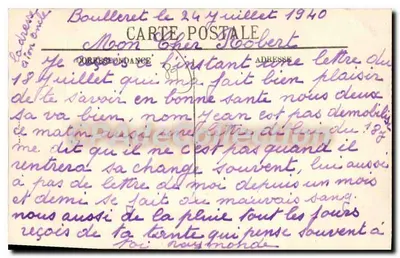 Boulleret le 24 Juillet 1940
Mon Cher Robert
CARTE POSTALE
CORRESPONDANCE
ADRESSE
Je reçois à l'instant votre lettre du
18 Juillet qui me fait bien plaisir
de te savoir en bonne sante nous deux
sa va bien, nom Jean est pas demobilisé
ce matin aussi une lettre de lui du 18 y
me dit qu'il ne c'est pas quand il
rentrera sa change souvent, lui aussi
à pas de lettre de moi depuis un mois
et demi se fait du mauvais sang
nous aussi de la pluie tout les jours
reçois de ta tante qui pense souvent à
toi raymonde